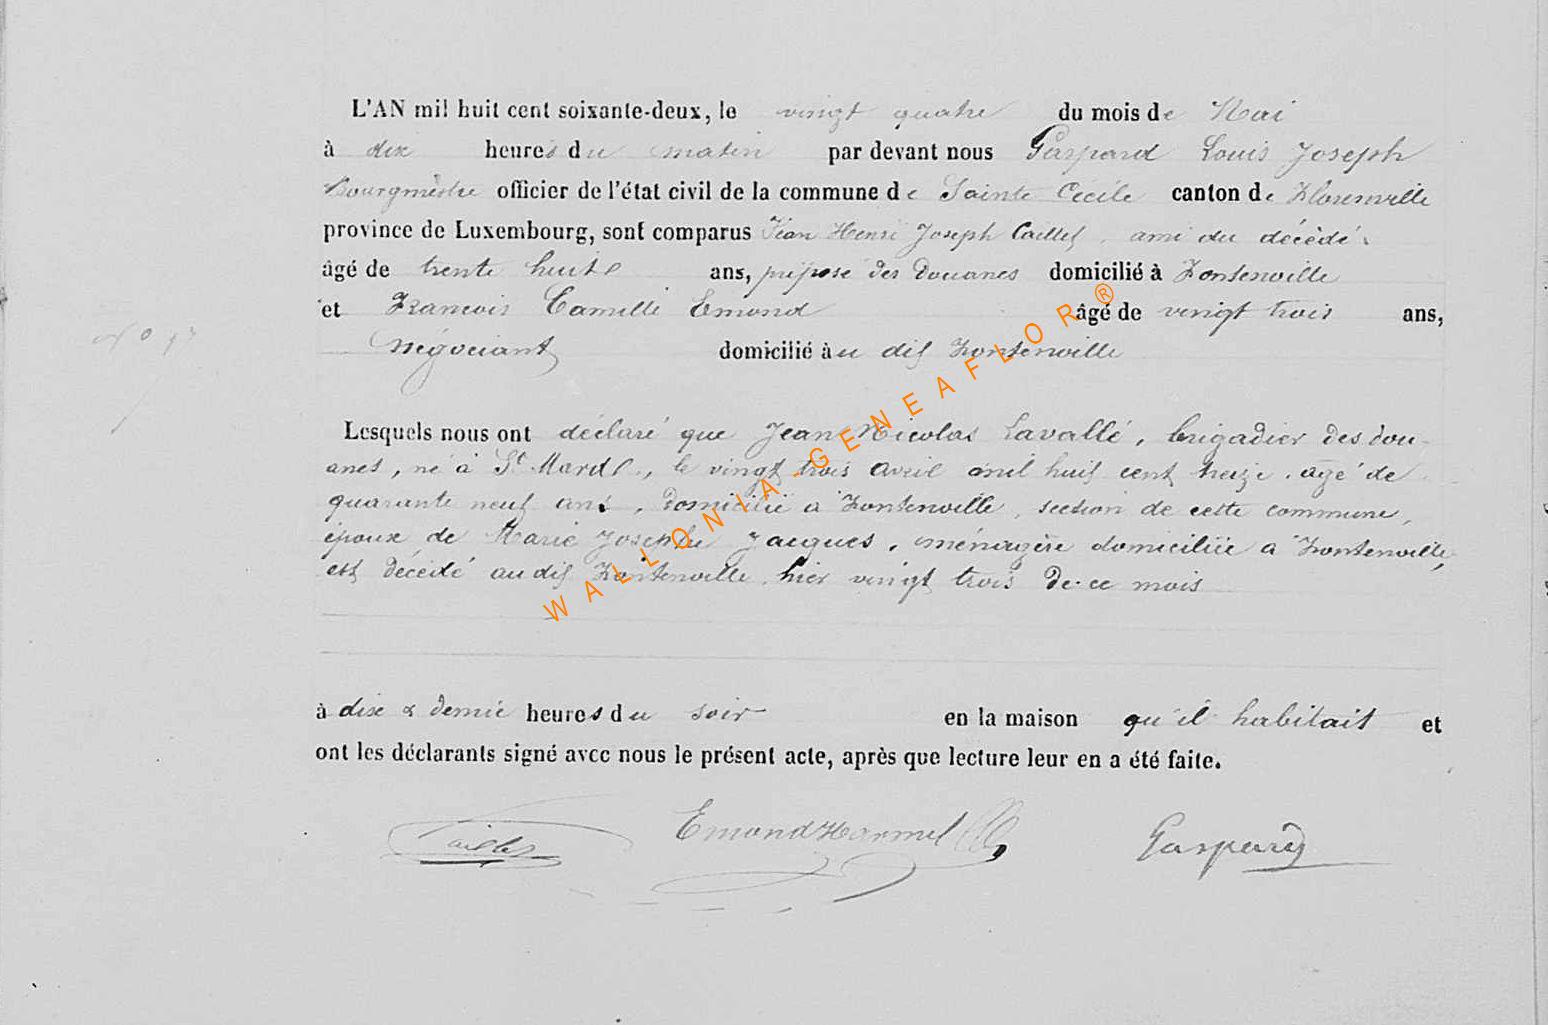 L'AN mil huit cent soixante-deux, le vingt quatre du mois de Mai
à dix heures du matin par devant nous Gaspard Louis Joseph
Bourgmestre officier de l'état civil de la commune de Sainte Cécile canton de Florenville
province de Luxembourg, sont comparus Jean Henri Joseph Caillet, ami du décédé,
âgé de trente huit ans, préposé des douanes domicilié à Fontenoille
et Francois Camille Emond âgé de vingt trois ans,
négociant domicilié au dit Fontenoille
Lesquels nous ont déclaré que Jean Nicolas Lavallé, brigadier des dou-
anes, né à St Mard, le vingt trois avril mil huit cent treize, agé de
quarante neuf ans, domicilié à Fontenoille, section de cette commune,
époux de Marie Josephe Jacques, ménagère domiciliée à Fontenoille,
est décédé au dit Fontenoille hier vingt trois de ce mois
à dix & demie heures du soir en la maison qu'il habitait et
ont les déclarants signé avec nous le présent acte, après que lecture leur en a été faite.
Caillet Emond Harmel Gaspard
WALLONIA-GENEAFLOR®